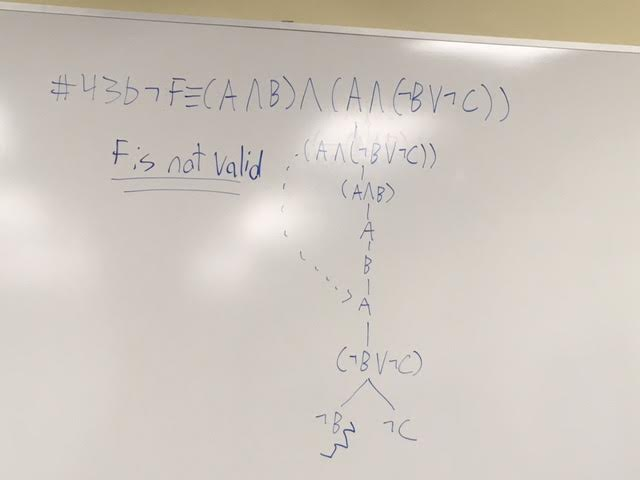 #43b ¬F≡(A∧B)∧(A∧(¬B∨¬C))
F is not valid
(A∧(¬B∨¬C))
(A∧B)
A
B
A
(¬B∨¬C)
¬B ¬C